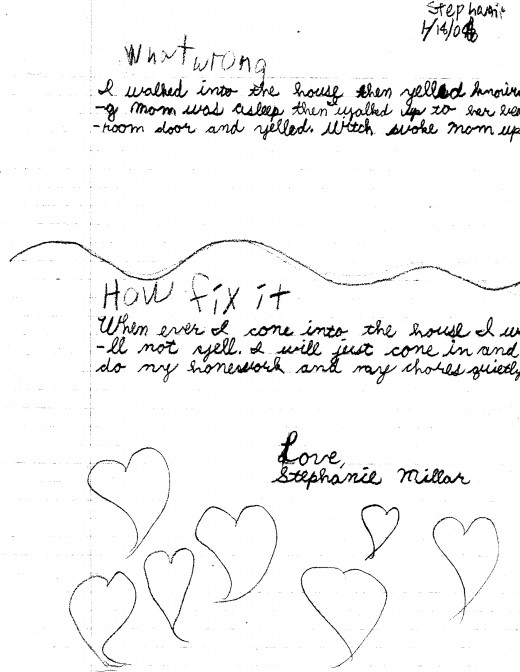 Stephanie
1/18/06
What wrong
I walked into the house then yelled knowin
-g mom was asleep then walked up to her bed
-room door and yelled. Witch woke mom up
How fix it
When ever I come into the house I w
-ll not yell. I will just come in and
do my homework and my chores quietly
Love,
Stephanie Millar